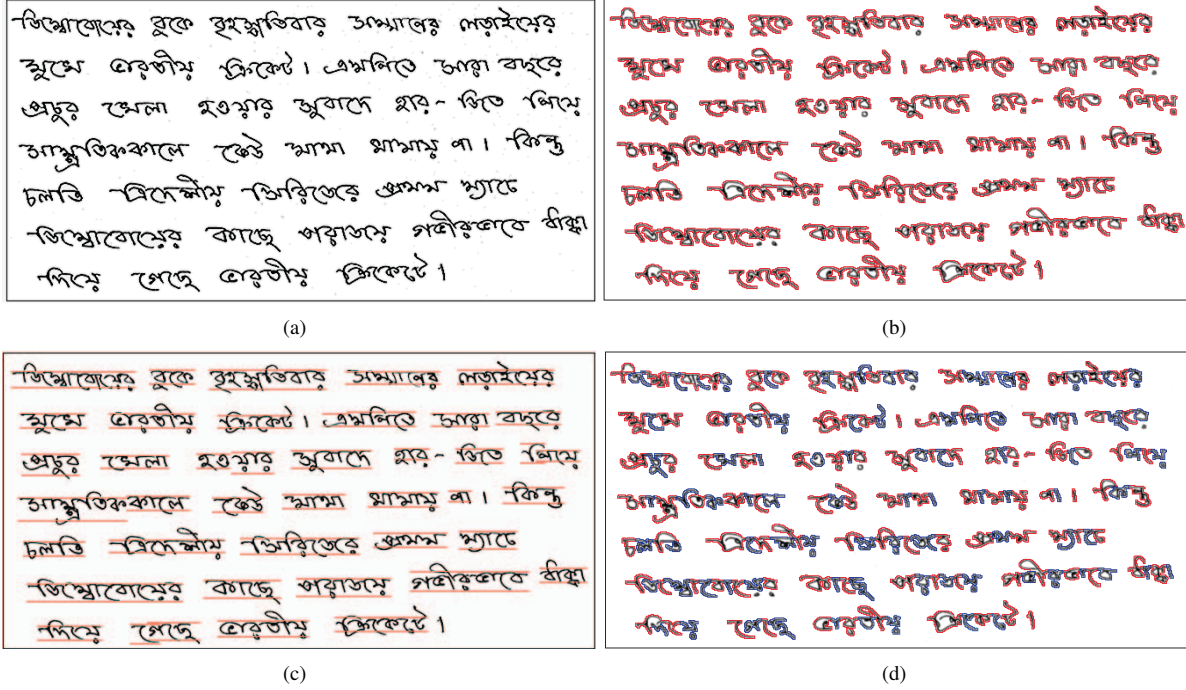 জিম্বোবোয়ের বুকে বৃহস্পতিবার সম্মানের লড়াইয়ের
মুখে ভারতীয় ক্রিকেট। এমনিতে সারা বছরে
প্রচুর খেলা হওয়ার সুবাদে হার- জিতে নিয়ে
সাম্প্রতিককালে কেউ মাথা ঘামায় না। কিন্তু
চলতি ত্রিদেশীয় সিরিজের প্রথম ম্যাচে
জিম্বোবোয়ের কাছে পরাজয়ে গভীরভাবে ধাক্কা
দিয়ে গেছে ভারতীয় ক্রিকেটে।
(a)
জিম্বোবোয়ের বুকে বৃহস্পতিবার সম্মানের লড়াইয়ের
মুখে ভারতীয় ক্রিকেট। এমনিতে সারা বছরে
প্রচুর খেলা হওয়ার সুবাদে হার- জিতে নিয়ে
সাম্প্রতিককালে কেউ মাথা ঘামায় না। কিন্তু
চলতি ত্রিদেশীয় সিরিজের প্রথম ম্যাচে
জিম্বোবোয়ের কাছে পরাজয়ে গভীরভাবে ধাক্কা
দিয়ে গেছে ভারতীয় ক্রিকেটে।
(b)
জিম্বোবোয়ের বুকে বৃহস্পতিবার সম্মানের লড়াইয়ের
মুখে ভারতীয় ক্রিকেট। এমনিতে সারা বছরে
প্রচুর খেলা হওয়ার সুবাদে হার- জিতে নিয়ে
সাম্প্রতিককালে কেউ মাথা ঘামায় না। কিন্তু
চলতি ত্রিদেশীয় সিরিজের প্রথম ম্যাচে
জিম্বোবোয়ের কাছে পরাজয়ে গভীরভাবে ধাক্কা
দিয়ে গেছে ভারতীয় ক্রিকেটে।
(c)
জিম্বোবোয়ের বুকে বৃহস্পতিবার সম্মানের লড়াইয়ের
মুখে ভারতীয় ক্রিকেট। এমনিতে সারা বছরে
প্রচুর খেলা হওয়ার সুবাদে হার- জিতে নিয়ে
সাম্প্রতিককালে কেউ মাথা ঘামায় না। কিন্তু
চলতি ত্রিদেশীয় সিরিজের প্রথম ম্যাচে
জিম্বোবোয়ের কাছে পরাজয়ে গভীরভাবে ধাক্কা
দিয়ে গেছে ভারতীয় ক্রিকেটে।
(d)